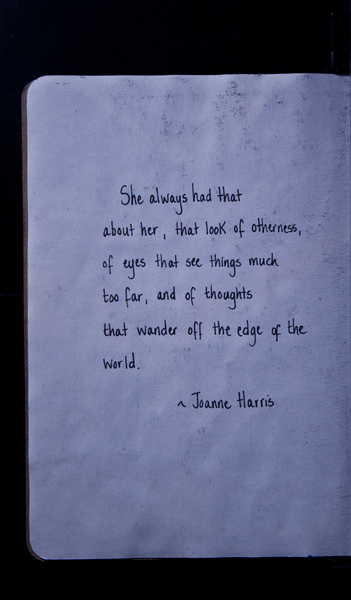 She always had that
about her, that look of otherness,
of eyes that see things much
too far, and of thoughts
that wander off the edge of the
world.
~ Joanne Harris